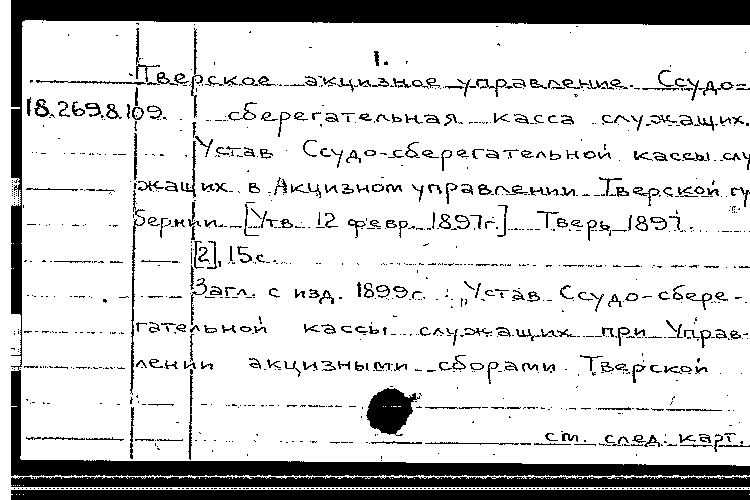 1.
Тверское акцизное управление. Ссудо=
18.269.8.109. сберегательная касса служащих.
Устав Ссудо-сберегательной кассы слу
жащих в Акцизном управлении Тверской гу
бернии [Утв. 12 февр. 1897г.] Тверь, 1897.
[2], 15с.
Загл. с изд. 1899г.: „Устав Ссудо-сбере-
гательной кассы служащих при Управ-
лении акцизными сборами Тверской
см. след. карт.